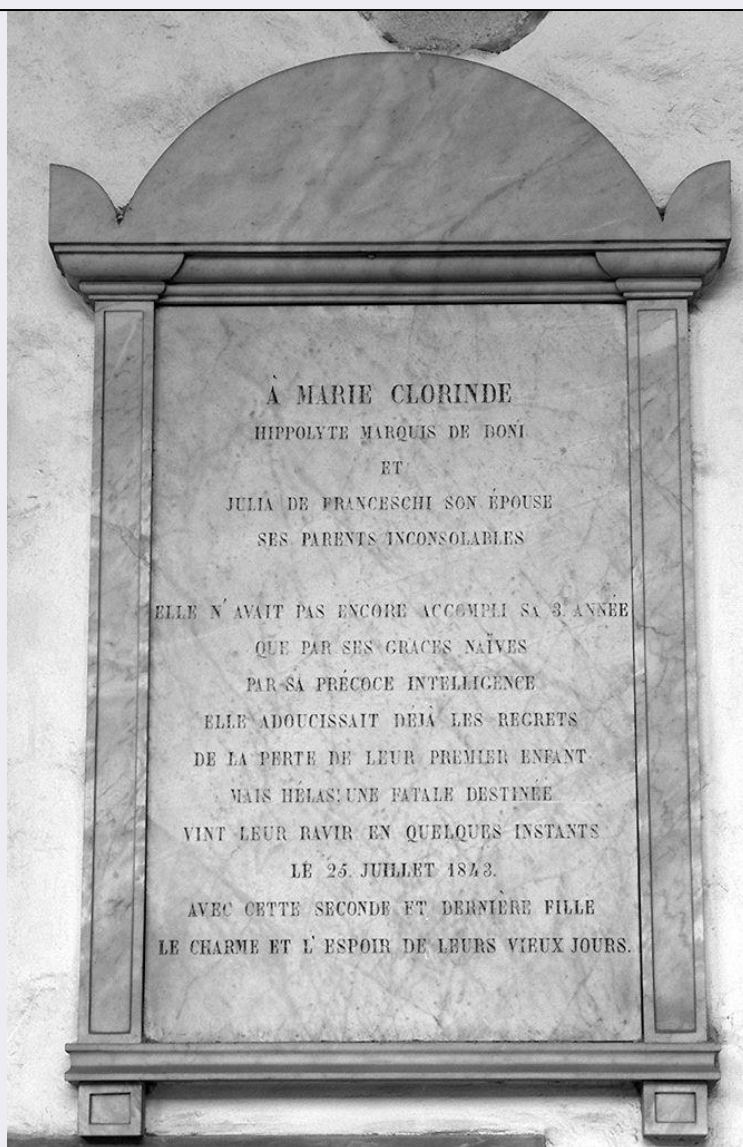 À MARIE CLORINDE
HIPPOLYTE MARQUIS DE BONI
ET
JULIA DE FRANCESCHI SON ÉPOUSE
SES PARENTS INCONSOLABLES
ELLE N'AVAIT PAS ENCORE ACCOMPLI SA 3. ANNÉE
QUE PAR SES GRACES NAÏVES
PAR SA PRÉCOCE INTELLIGENCE
ELLE ADOUCISSAIT DÉJÀ LES REGRETS
DE LA PERTE DE LEUR PREMIER ENFANT
MAIS HÉLAS! UNE FATALE DESTINÉE
VINT LEUR RAVIR EN QUELQUES INSTANTS
LE 25. JUILLET 1843.
AVEC CETTE SECONDE ET DERNIÈRE FILLE
LE CHARME ET L'ESPOIR DE LEURS VIEUX JOURS.